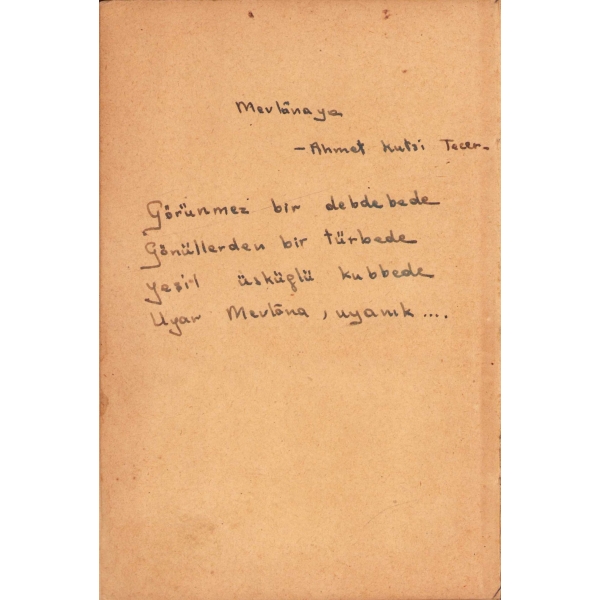 Mevlânaya
- Ahmet Kutsi Tecer -
Görünmez bir debdebede
Gönüllerden bir türbede
Yeşil üsküğlü kubbede
Uyar Mevlâna, uyanık ....